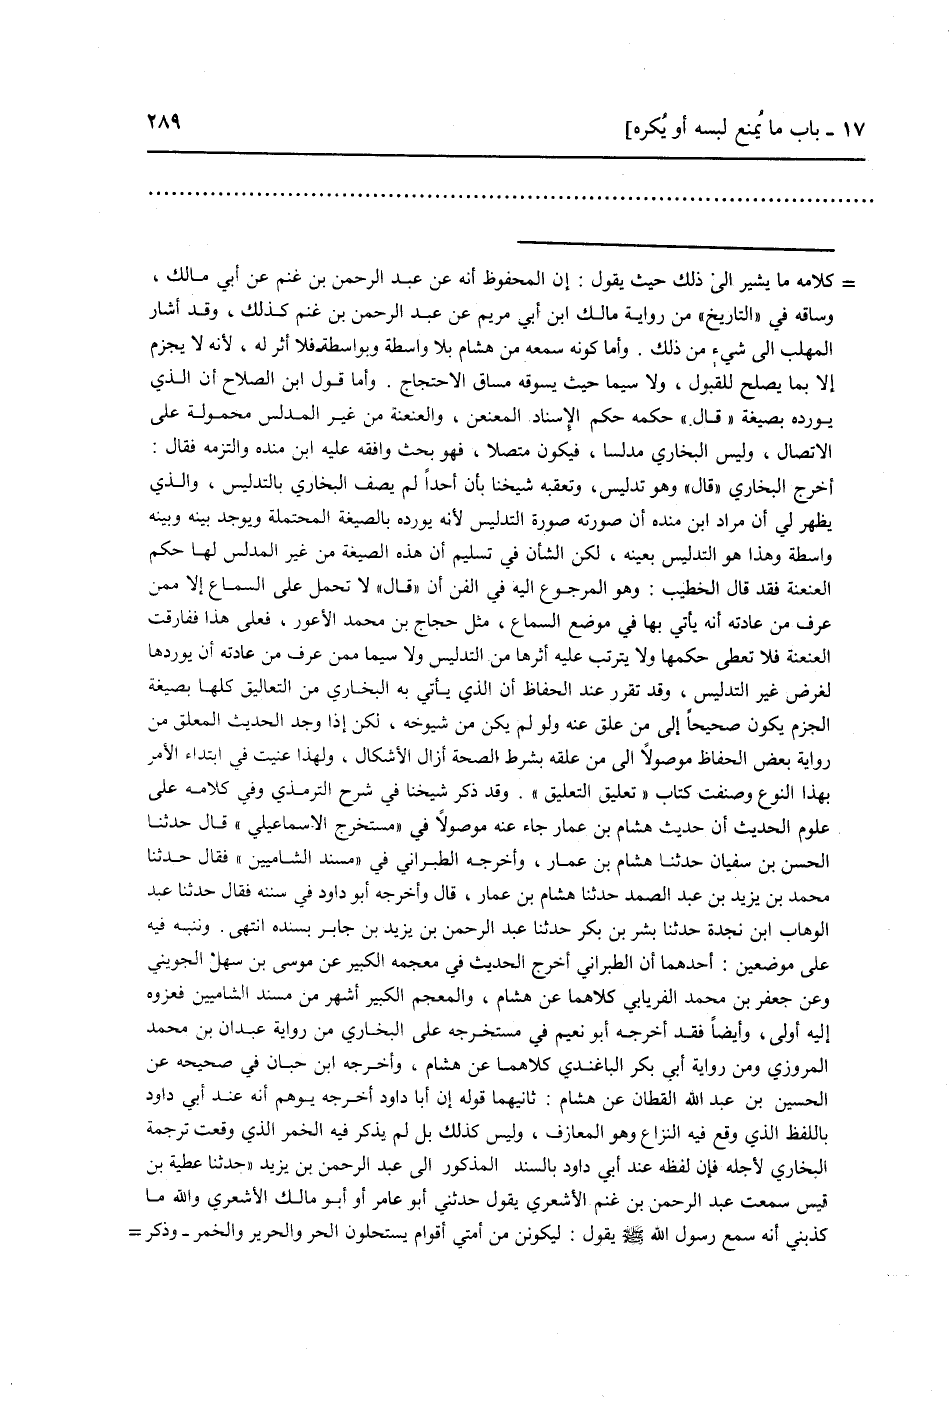 ١٧ ـ باب ما يُمنع لبسه أو يُكره] ٢٨٩
= كلامه ما يشير الى ذلك حيث يقول : إن المحفوظ أنه عن عبد الرحمن بن غنم عن أبي مالك ،
وساقه في «التاريخ» من رواية مالك ابن أبي مريم عن عبد الرحمن بن غنم كذلك ، وقد أشار
المهلب الى شيء من ذلك . وأما كونه سمعه من هشام بلا واسطة وبواسطة فلا أثر له ، لأنه لا يجزم
إلا بما يصلح للقبول ، ولا سيما حيث يسوقه مساق الاحتجاج . وأما قول ابن الصلاح أن الذي
يورده بصيغة « قال » حكمه حكم الإسناد المعنعن ، والعنعنة من غير المدلس محمولة على
الاتصال ، وليس البخاري مدلسا ، فيكون متصلا ، فهو بحث وافقه عليه ابن منده والتزمه فقال :
أخرج البخاري «قال» وهو تدليس، وتعقبه شيخنا بأن أحداً لم يصف البخاري بالتدليس ، والذي
يظهر لي أن مراد ابن منده أن صورته صورة التدليس لأنه يورده بالصيغة المحتملة ويوجد بينه وبينه
واسطة وهذا هو التدليس بعينه ، لكن الشأن في تسليم أن هذه الصيغة من غير المدلس لها حكم
العنعنة فقد قال الخطيب : وهو المرجوع اليه في الفن أن «قال» لا تحمل على السماع إلا ممن
عرف من عادته أنه يأتي بها في موضع السماع ، مثل حجاج بن محمد الأعور ، فعلى هذا ففارقت
العنعنة فلا تعطى حكمها ولا يترتب عليه أثرها من التدليس ولا سيما ممن عرف من عادته أن يوردها
لغرض غير التدليس ، وقد تقرر عند الحفاظ أن الذي يأتي به البخاري من التعاليق كلها بصيغة
الجزم يكون صحيحاً إلى من علق عنه ولو لم يكن من شيوخه ، لكن إذا وجد الحديث المعلق من
رواية بعض الحفاظ موصولاً الى من علقه بشرط الصحة أزال الأشكال ، ولهذا عنيت في ابتداء الأمر
بهذا النوع وصنفت كتاب « تعليق التعليق » . وقد ذكر شيخنا في شرح الترمذي وفي كلامه على
علوم الحديث أن حديث هشام بن عمار جاء عنه موصولاً في «مستخرج الاسماعيلي » قال حدثنا
الحسن بن سفيان حدثنا هشام بن عمار ، وأخرجه الطبراني في «مسند الشاميين » فقال حدثنا
محمد بن يزيد بن عبد الصمد حدثنا هشام بن عمار ، قال وأخرجه أبو داود في سننه فقال حدثنا عبد
الوهاب ابن نجدة حدثنا بشر بن بكر حدثنا عبد الرحمن بن يزيد بن جابر بسنده انتهى . وننبه فيه
على موضعين : أحدهما أن الطبراني أخرج الحديث في معجمه الكبير عن موسى بن سهل الجويني
وعن جعفر بن محمد الفريابي كلاهما عن هشام ، والمعجم الكبير أشهر من مسند الشاميين فعزوه
إليه أولى، وأيضاً فقد أخرجه أبو نعيم في مستخرجه على البخاري من رواية عبدان بن محمد
المروزي ومن رواية أبي بكر الباغندي كلاهما عن هشام ، وأخرجه ابن حبان في صحيحه عن
الحسين بن عبد الله القطان عن هشام : ثانيهما قوله إن أبا داود أخرجه يوهم أنه عند أبي داود
باللفظ الذي وقع فيه النزاع وهو المعازف ، وليس كذلك بل لم يذكر فيه الخمر الذي وقعت ترجمة
البخاري لأجله فإن لفظه عند أبي داود بالسند المذكور الى عبد الرحمن بن يزيد «حدثنا عطية بن
قيس سمعت عبد الرحمن بن غنم الأشعري يقول حدثني أبو عامر أو أبو مالك الأشعري والله ما
كذبني أنه سمع رسول الله ﷺ يقول : ليكونن من أمتي أقوام يستحلون الحر والحرير والخمر ـ وذكر =